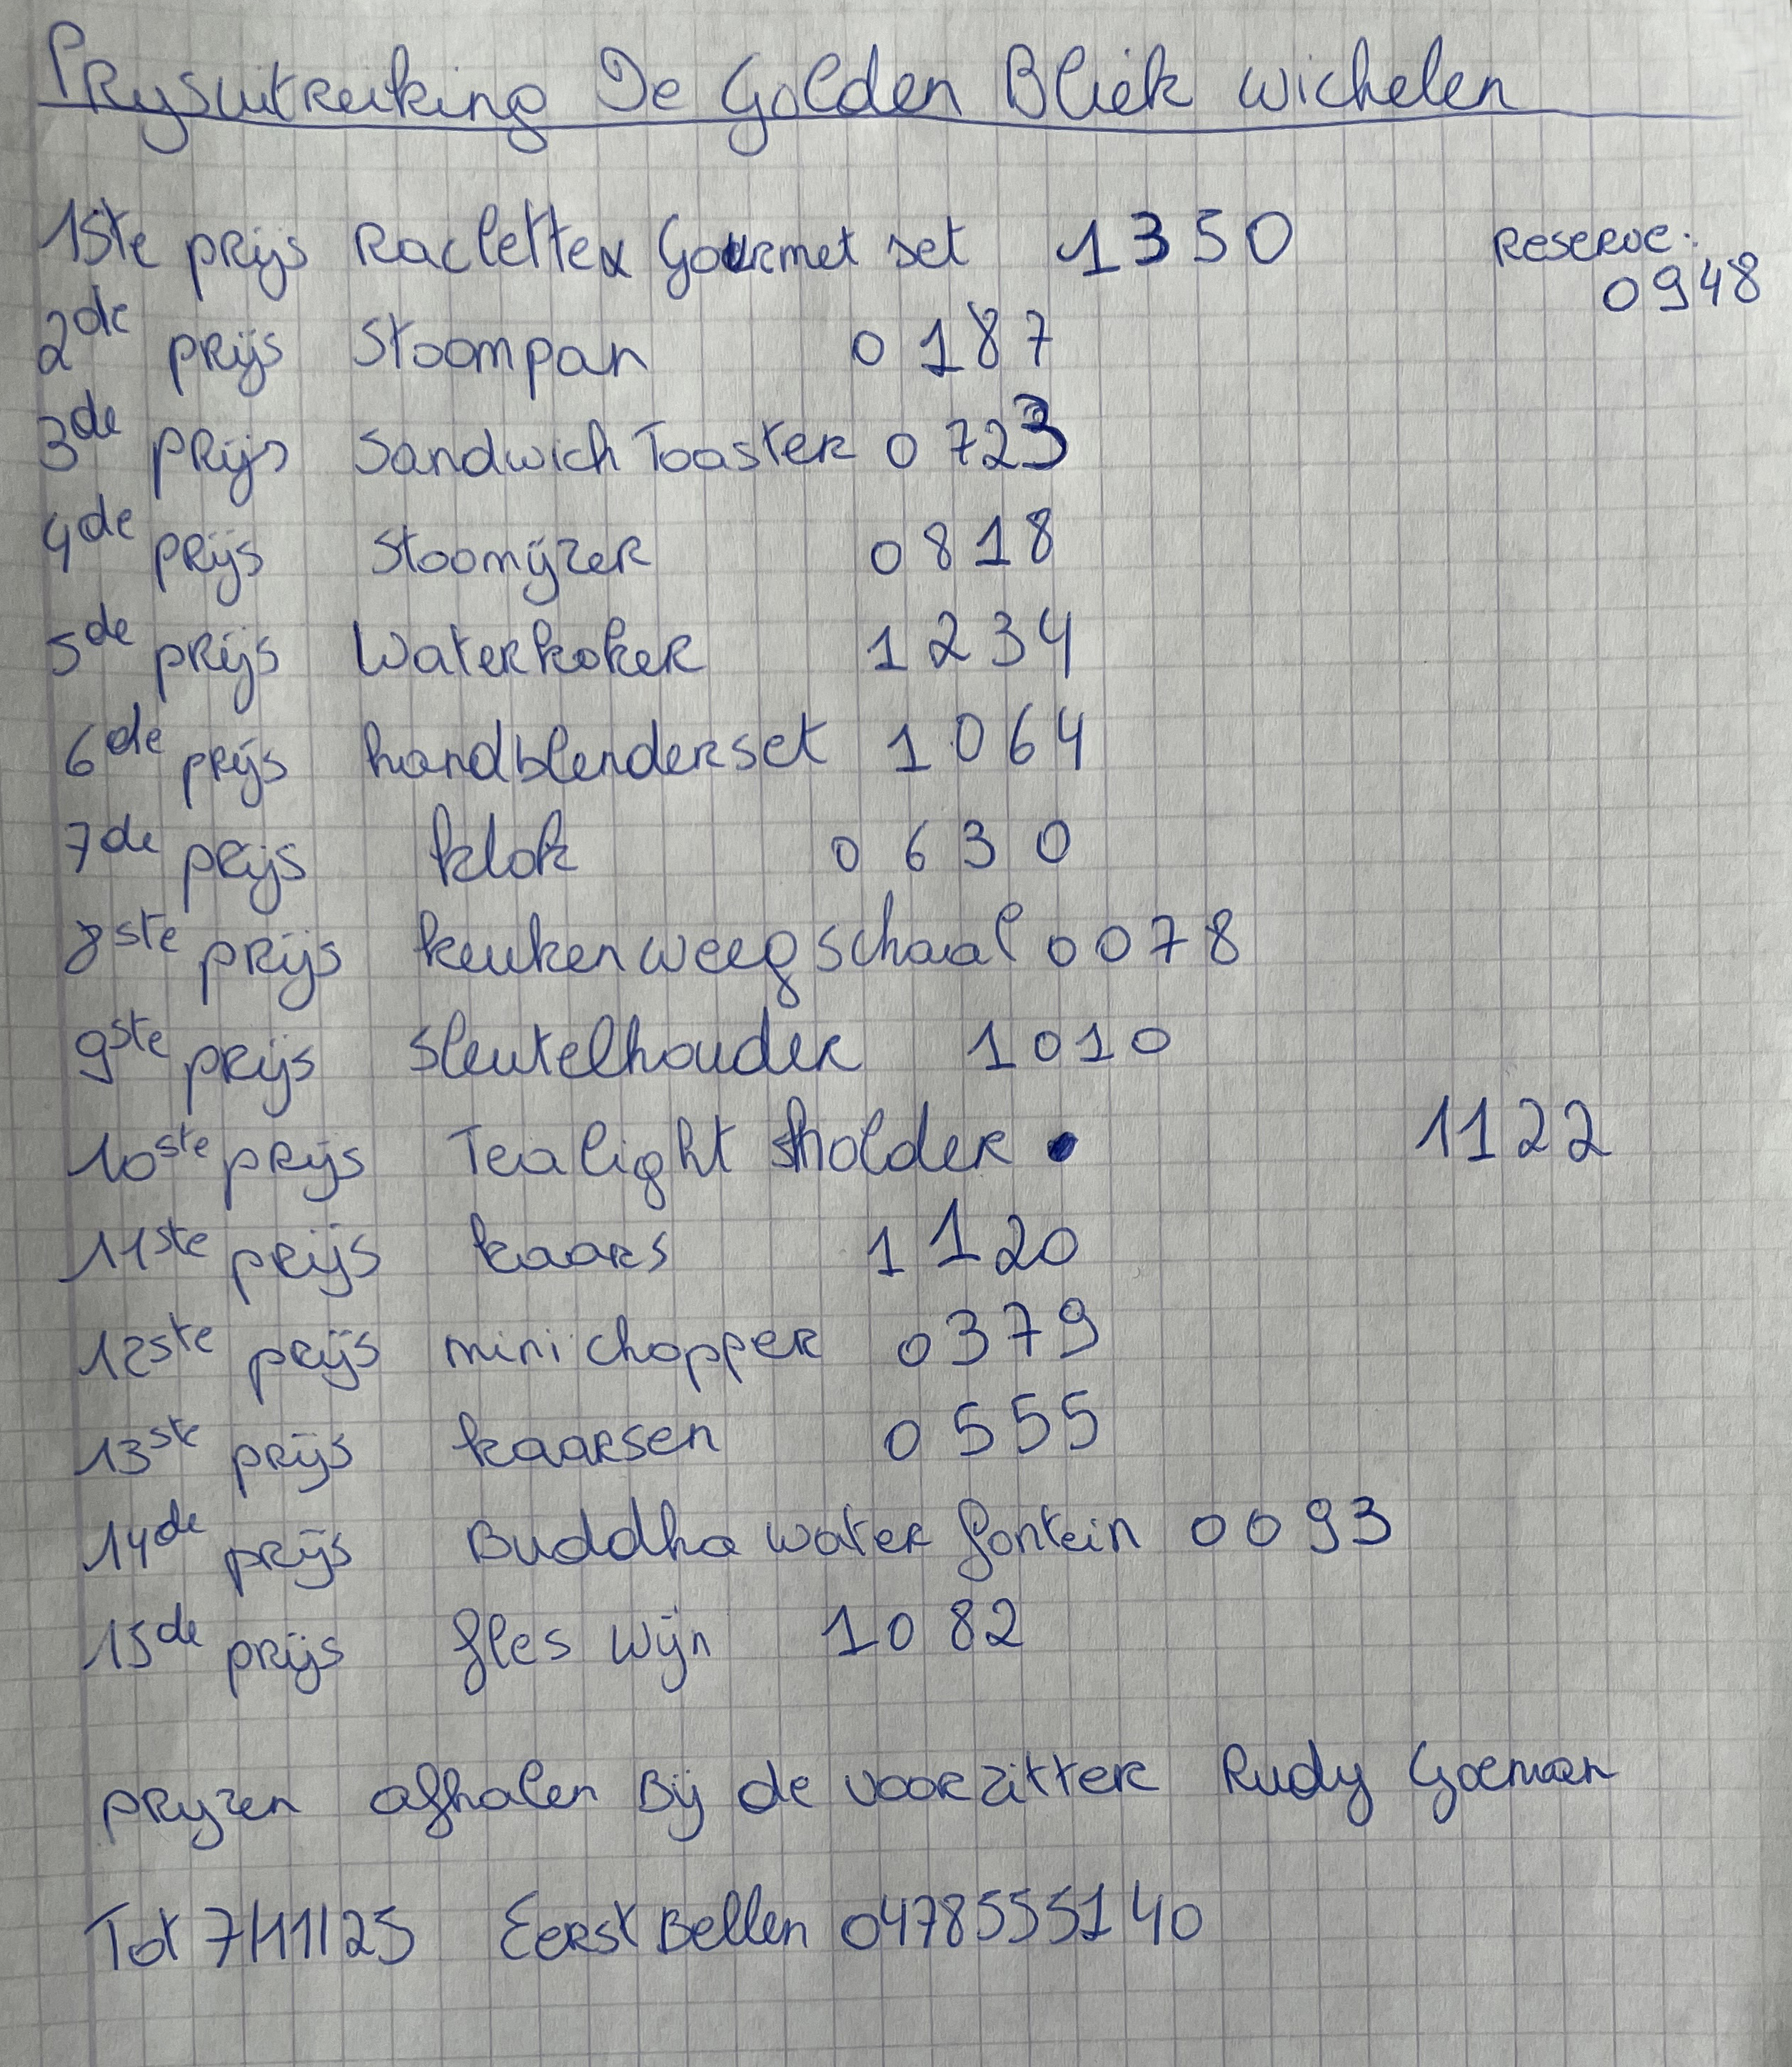 Prysuitreiking De Golden Bliek Wichelen
1ste prijs Raclette & Gourmet set 1350 Reserve:
0948
2de prijs Stoompan 0187
3de prijs Sandwich Toaster 0723
4de prijs Stoomijzer 0818
5de prijs Waterkoker 1234
6de prijs handblenderset 1064
7de prijs klok 0630
8ste prijs keukenweegschaal 0078
9ste prijs sleutelhouder 1010
10ste prijs Tealight holder 1122
11ste prijs kaars 1120
12ste prijs minichopper 0379
13ste prijs kaarsen 0555
14de prijs Buddha water fontein 0093
15de prijs fles wijn 1082
pryzen afhalen Bij de voorzitter Rudy Goeman
Tot 7/11/25 Eerst Bellen 0478555140